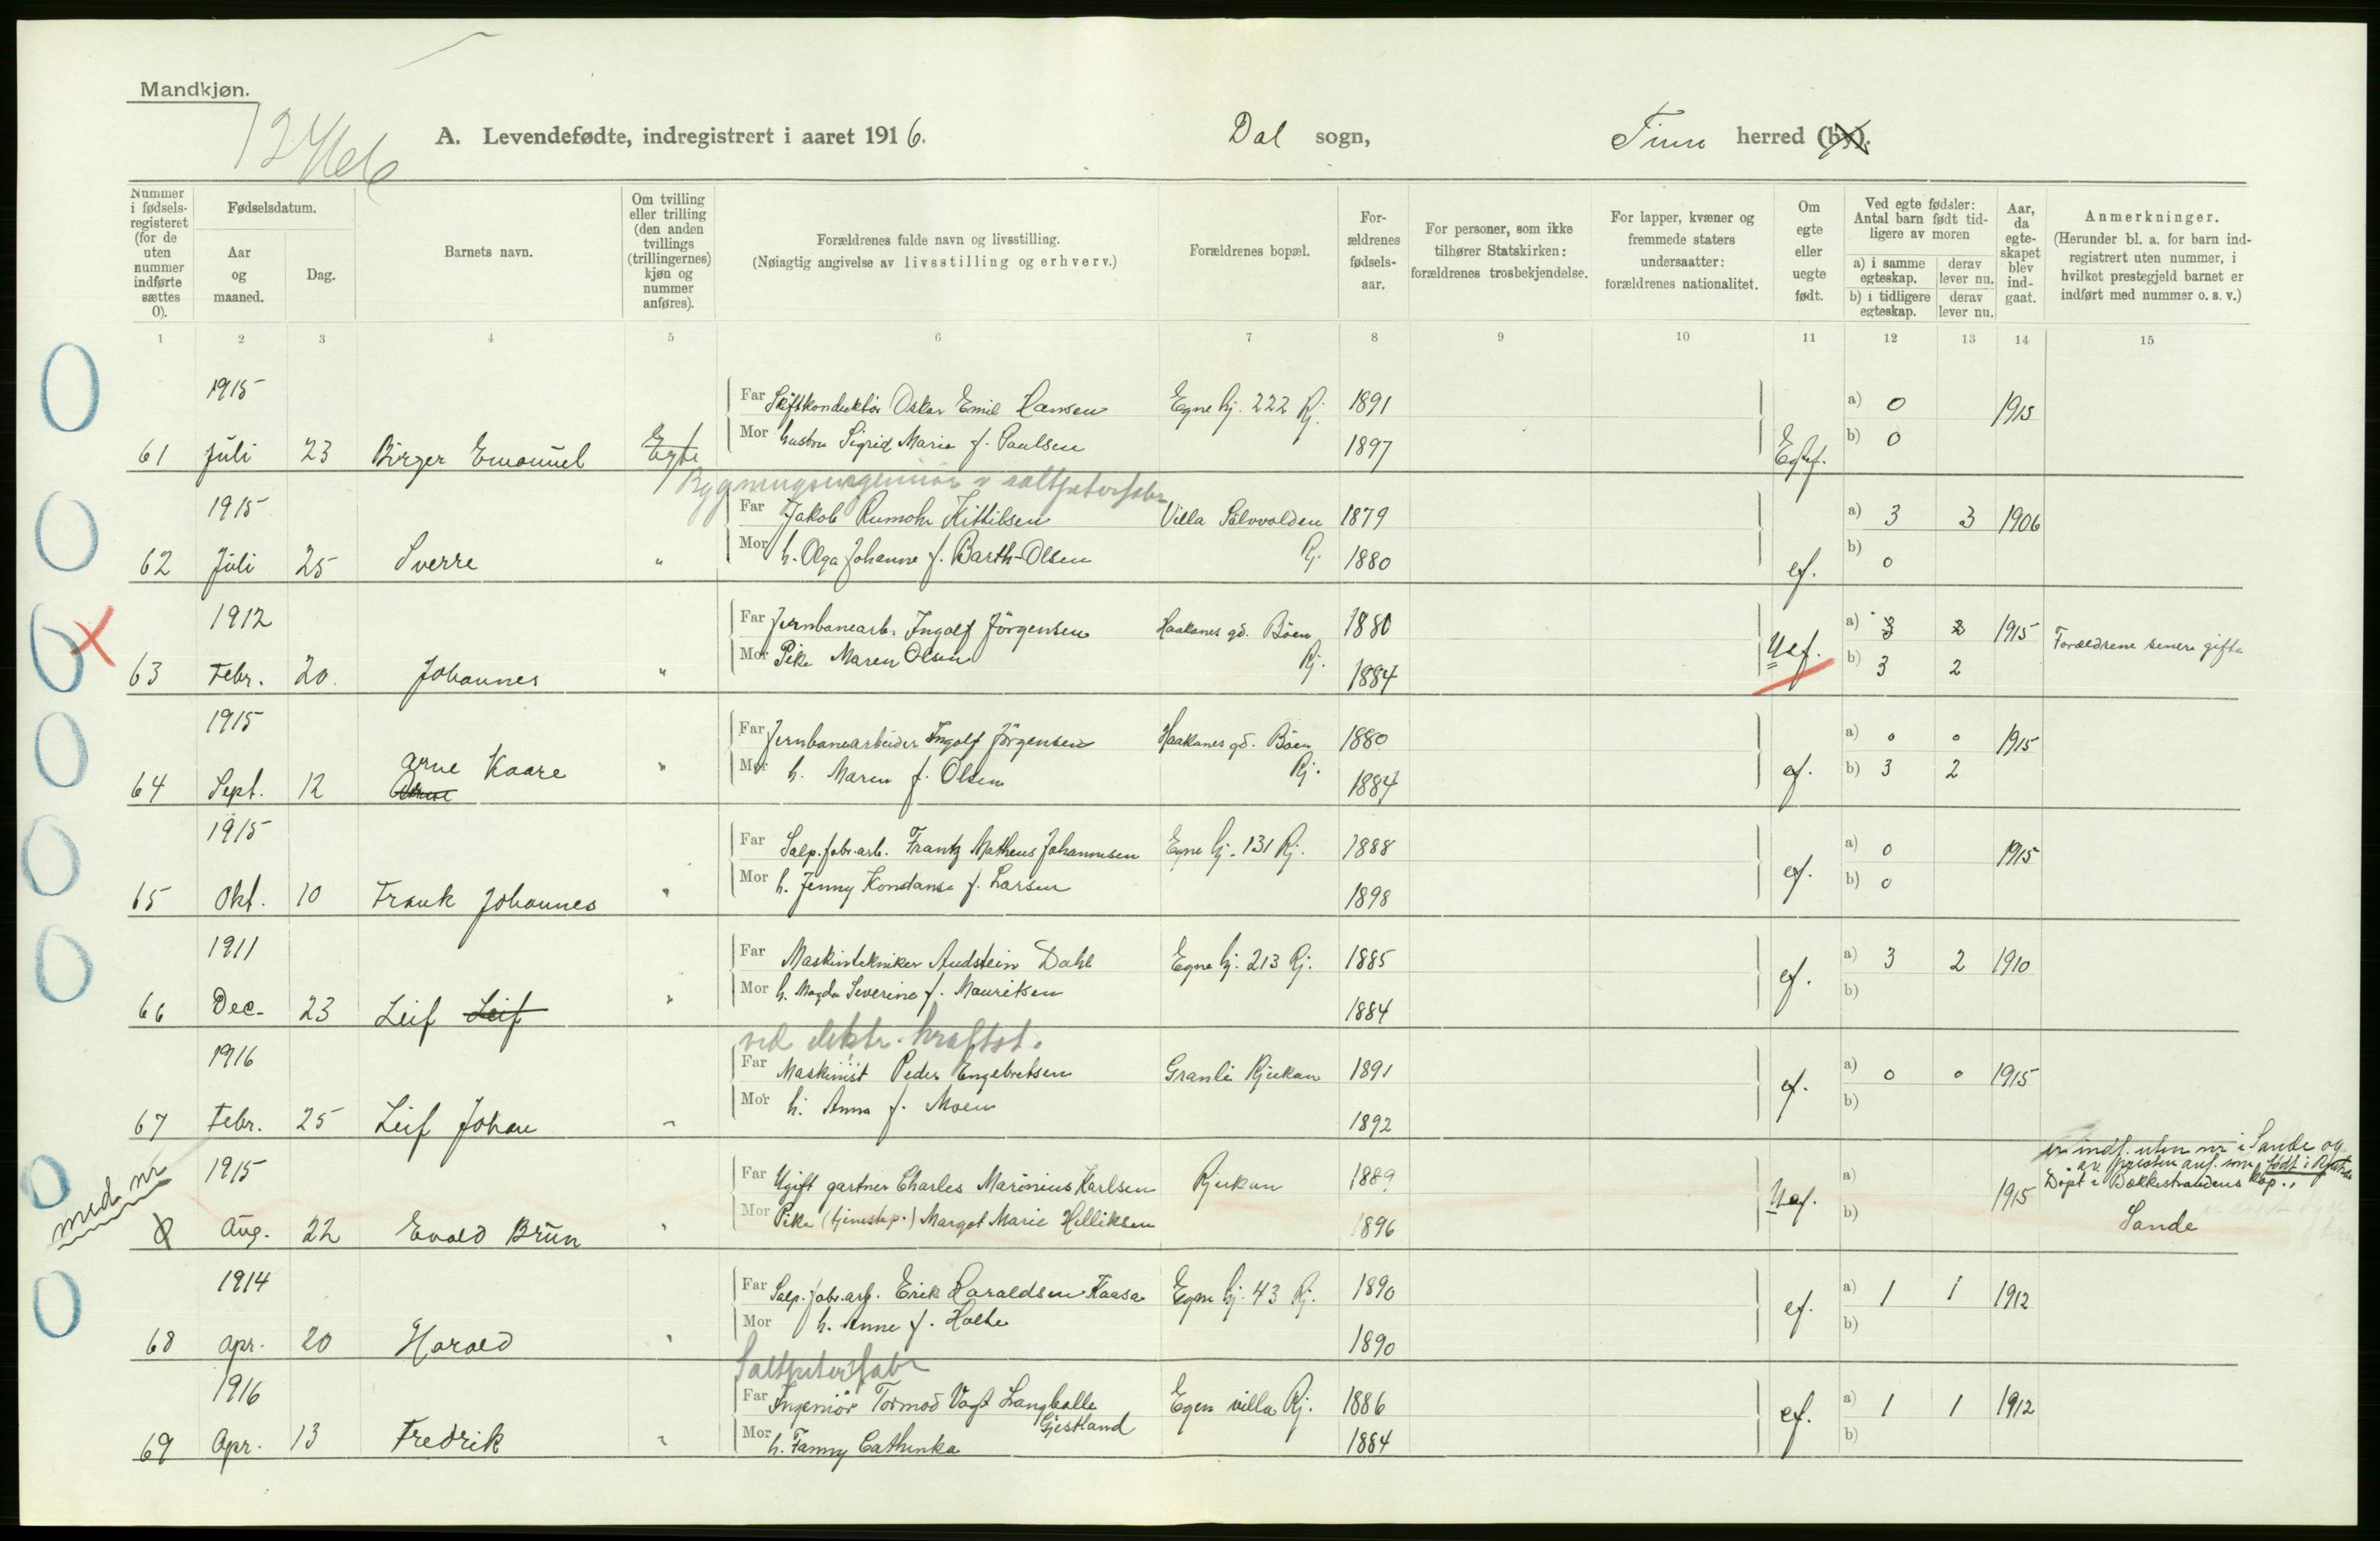 Mandkjøn.
A. Levendefødte, indregistrert i aaret 1916. Dal sogn, Tinn herred (by).
Nummer i fødsels-registeret (for de uten nummer indførte sættes 0).
Fødselsdatum.
Aar og maaned.
Dag.
Barnets navn.
Om tvilling eller trilling (den anden tvillings (trillingernes) kjøn og nummer anføres).
Forældrenes fulde navn og livsstilling.
(Nøiagtig angivelse av livsstilling og erhverv.)
Forældrenes bopæl.
For-ældrenes fødsels-aar.
For personer, som ikke tilhører Statskirken: forældrenes trosbekjendelse.
For lapper, kvæner og fremmede staters undersaatter: forældrenes nationalitet.
Om egte eller uegte født.
Ved egte fødsler: Antal barn født tid-ligere av moren
a) i samme egteskap. derav lever nu.
b) i tidligere egteskap. derav lever nu.
Aar, da egte-skapet blev ind-gaat.
Anmerkninger.
(Herunder bl. a. for barn ind-registrert uten nummer, i hvilket prestegjeld barnet er indført med nummer o. s. v.)
1 2 3 4 5 6 7 8 9 10 11 12 13 14 15
1915 Far Skiftkonduktör Oskar Emil Hansen Egne hj. 222 Rj. 1891 a) 0 1915
61 Juli 23 Birger Emanuel Egte Mor hustru Sigrid Marie f. Paulsen 1897 Egtef. b) 0
Bygningsingeniør v saltpeterfabr
1915 Far Jakob Rumohr Kittilsen Villa Solvolden 1879 a) 3 3 1906
62 Juli 25 Sverre " Mor h. Olga Johanne f. Barth-Olsen Rj. 1880 ef. b) 0
1912 Far Jernbanearb. Ingolf Jörgensen Haakanes gd. Böen 1880 a) 3 2 1915 Forældrene senere gifte
63 Febr. 20. Johannes " Mor Pike Maren Olsen Rj. 1884 Uef. b) 3 2
1915 Far Jernbanearbeider Ingolf Jörgensen Haakanes gd. Böen 1880 a) 0 0 1915
Arne Kaare
64 Sept. 12 " Mor h. Maren f. Olsen Rj. 1884 ef. b) 3 2
1915 Far Salp.fabr.arb. Frantz Matheus Johannesen Egne hj. 131 Rj. 1888 a) 0 1915
65 Okt. 10 Frank Johannes " Mor h. Jenny Konstanse f. Larsen 1898 ef. b) 0
1911 Far Maskintekniker Audstein Dahl Egne hj. 213 Rj. 1885 a) 3 2 1910
66 Dec. 23 Leif Leif " Mor h. Magda Severine f. Mauritsen 1884 ef. b)
ved elektr. kraftst.
1916 Far Maskinist Peder Engebretsen Granli Rjukan 1891 a) 0 0 1915
67 Febr. 25 Leif Johan " Mor h. Anna f. Moen 1892 ef. b)
er indf. uten nr i Sande og
av presten anf. som født i Rjukan
med nr 1915 Far Ugift gartner Charles Marinius Karlsen Rjukan 1889 a) 1915 Döpt i Bækkestrandens kap.,
0 Aug. 22 Evald Brun " Mor Pike (tjenestep.) Margot Marie Helliksen 1896 Uef. b) Sande
1914 Far Salp.fabr.arb. Erik Haraldsen Kaasa Egne hj. 43 Rj. 1890 a) 1 1 1912
68 Apr. 20 Harald " Mor h. Anne f. Holte 1890 ef. b)
Saltpeterfabr
1916 Far Ingeniör Tormod Vogt Langballe Gjestland Egen villa Rj. 1886 a) 1 1 1912
69 Apr. 13 Fredrik " Mor h. Fanny Cathinka 1884 ef. b)